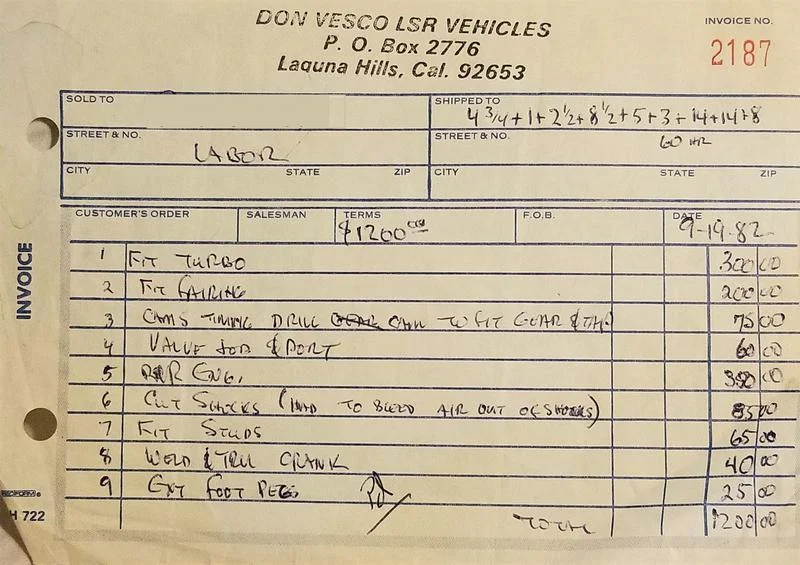 DON VESCO LSR VEHICLES
P. O. Box 2776
Laguna Hills, Cal. 92653
INVOICE NO.
2187
SOLD TO
SHIPPED TO
4 3/4 + 1 + 2 1/2 + 8 1/2 + 5 + 3 + 14 + 14 + 8
STREET & NO.
LABOR
STREET & NO.
60 HR
CITY STATE ZIP
CITY STATE ZIP
CUSTOMER'S ORDER SALESMAN TERMS F.O.B. DATE
$1200 9-19-82
INVOICE
1 FIT TURBO 300 00
2 FIT FAIRING 200 00
3 CAMS TIMING DRILL CAM TO FIT GEAR & 75 00
4 VALVE JOB & PORT 60 00
5 R&R ENG. 350 00
6 CUT SHOCKS (HAD TO BLEED AIR OUT OF SHOCKS) 85 00
7 FIT STUDS 65 00
8 WELD & TRU CRANK 40 00
9 EXT FOOT PEGS 25 00
TOTAL 1200 00
REDIFORM
H 722